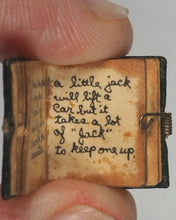 a little jack
will lift a
car but it
takes a lot
of "Jack"
to keep one up